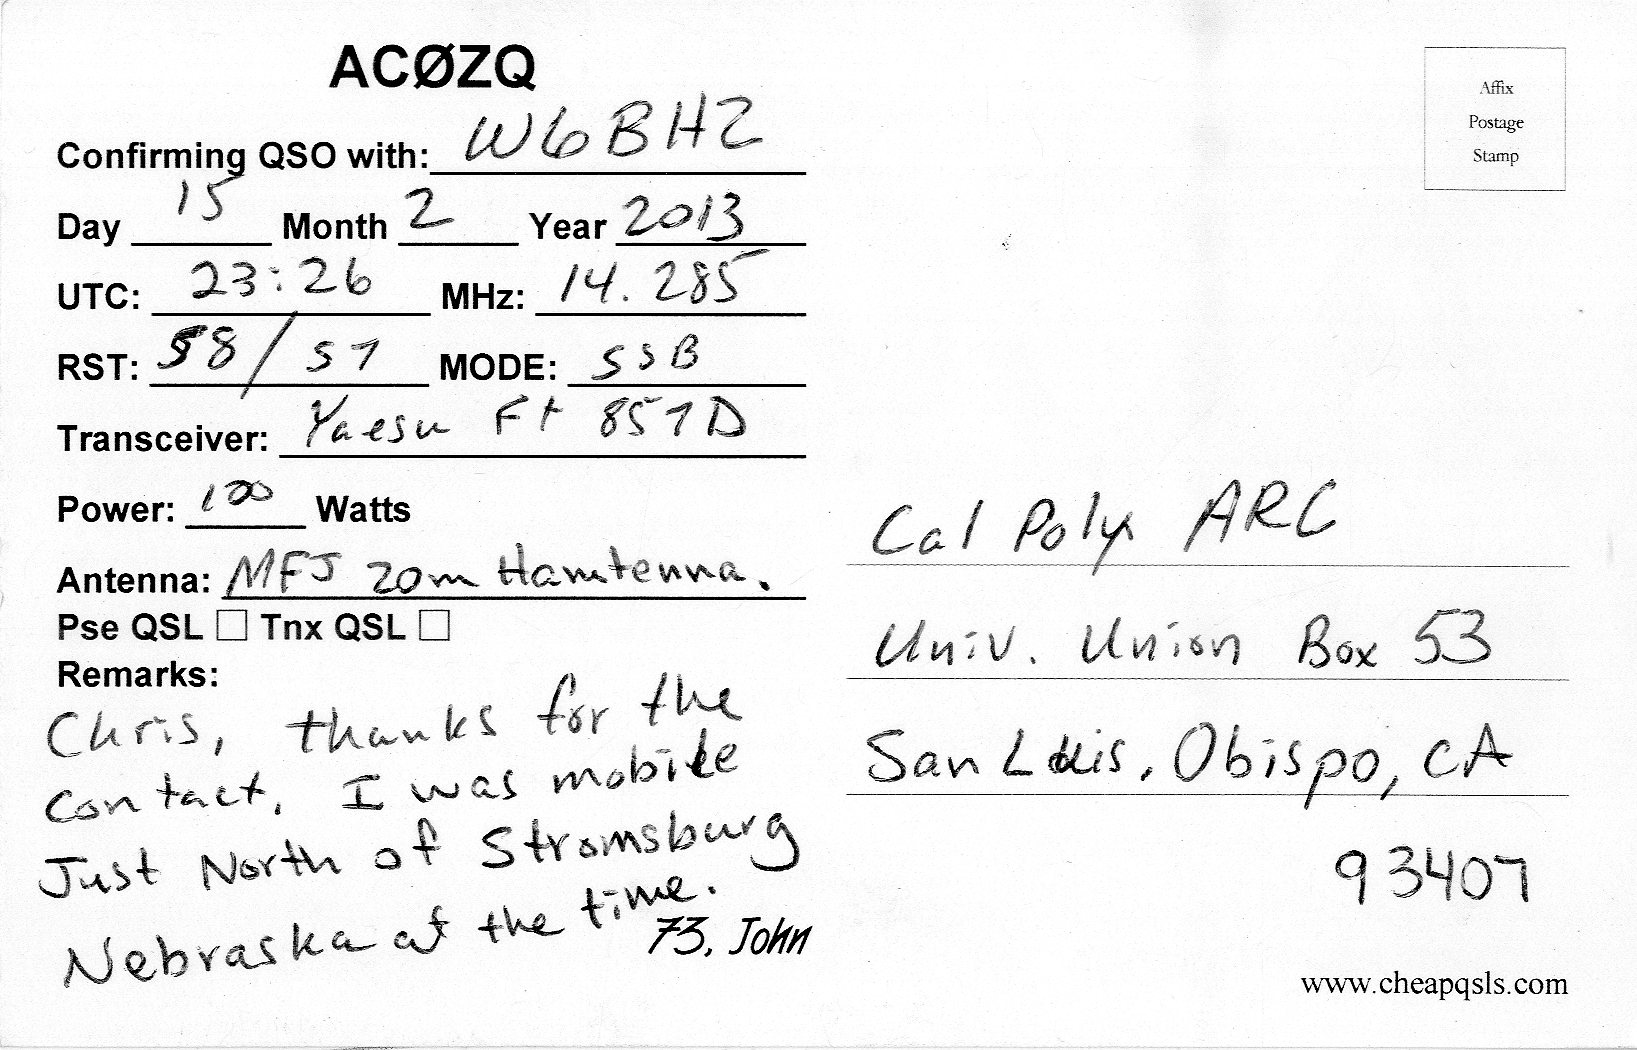 ACØZQ
Confirming QSO with: W6BHZ
Day 15 Month 2 Year 2013
UTC: 23:26 MHz: 14.285
RST: 58/57 MODE: SSB
Transceiver: Yaesu Ft 857D
Power: 100 Watts
Antenna: MFJ 20m Hamtenna.
Pse QSL ☐ Tnx QSL ☐
Remarks:
Chris, thanks for the
contact, I was mobile
Just North of Stromsburg
Nebraska at the time.
73, John
Affix
Postage
Stamp
Cal Poly ARC
Univ. Union Box 53
San Luis, Obispo, CA
93407
www.cheapqsls.com